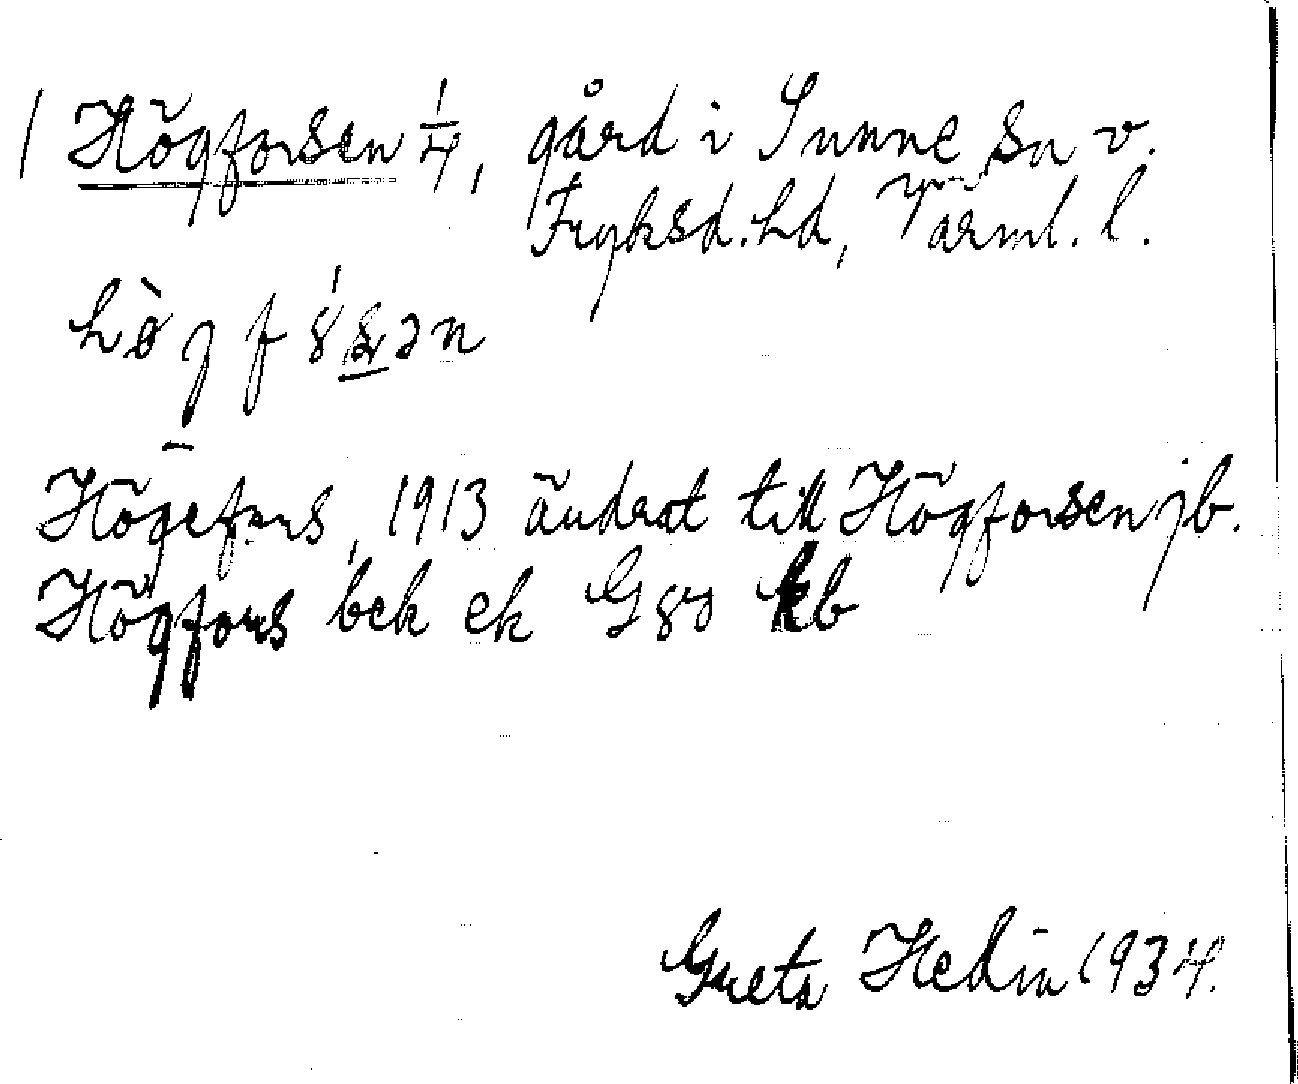 / Högforsen 1/4, gård i Sunne sn v.
Fryksd. hd, Värml. l.
Högefors, 1913 ändrat till Högforsen jb.
Högfors bek ek Ggy kb
Greta Hedin 1934.